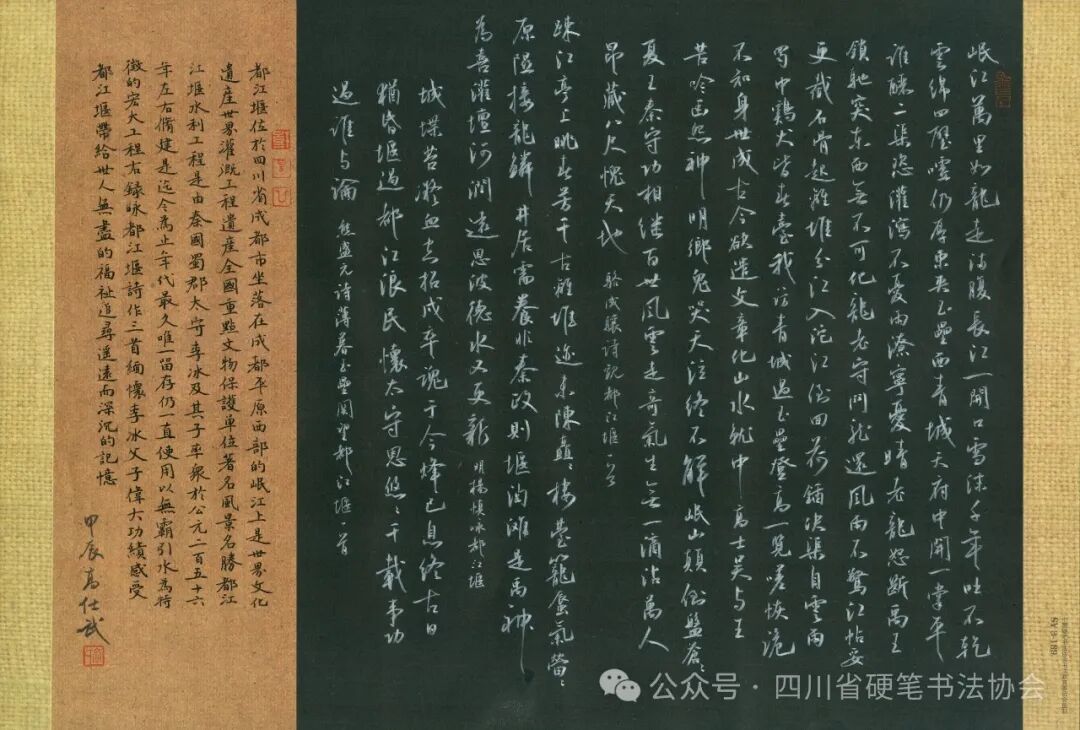 岷江萬里如龍走滿腹長江一開口雪沫千年吐不乾
雲綿四壓嚐仍厚東吳玉壘西青城天府中開一掌平
誰釃二渠恣灌瀉不憂雨潦寧憂晴老龍怒斷禹王
鎖馳突東西無不可化龍老守鬥龍還風雨不驚江帖妥
更截石骨起離堆分江入沱江倒回荷鍤決渠自雲雨
蜀中鷄犬皆春臺我訪青城過玉壘登高一覽嗟恢詭
不知身世成古今欲遣文章化山水就中高士吳與王
苦吟幽思神明鄉鬼哭天泣終不解岷山頹倒盤蒼々
夏王秦守功相繼百世風雲走奇氣生無一滴沾萬人
昂藏八尺愧天地 駱成驤詩記都江堰一首
疎江亭上眺春芳千古離堆迹未陳矗々樓臺籠蜃氣畇々
原隰接龍鱗井居需養非秦政則堰淘灘是禹神
為喜灌壇河潤遠恩波德水又更新 明楊慎咏都江堰
城堞苔凝血未拓成卒魂于今烽已息終古日
猶昏堰過都江浪民懷太守恩悠々千載事功
過誰與論 熊盛元詩薄暮玉壘關望都江堰一首
都江堰位於四川省成都市坐落在成都平原西部的岷江上是世界文化
遺産世界灌溉工程遺産全國重點文物保護單位著名風景名勝都江
江堰水利工程是由秦國蜀郡太守李冰及其子率衆於公元二百五十六
年左右脩建是迄今為止年代最久唯一留存仍一直使用以無霸引水為特
徵的宏大工程右録咏都江堰詩作三首緬懷李冰父子偉大功績感受
都江堰帶給世人無盡的福祉追尋遥遠而深沉的記憶
甲辰高仕武
公众号·四川省硬笔书法协会